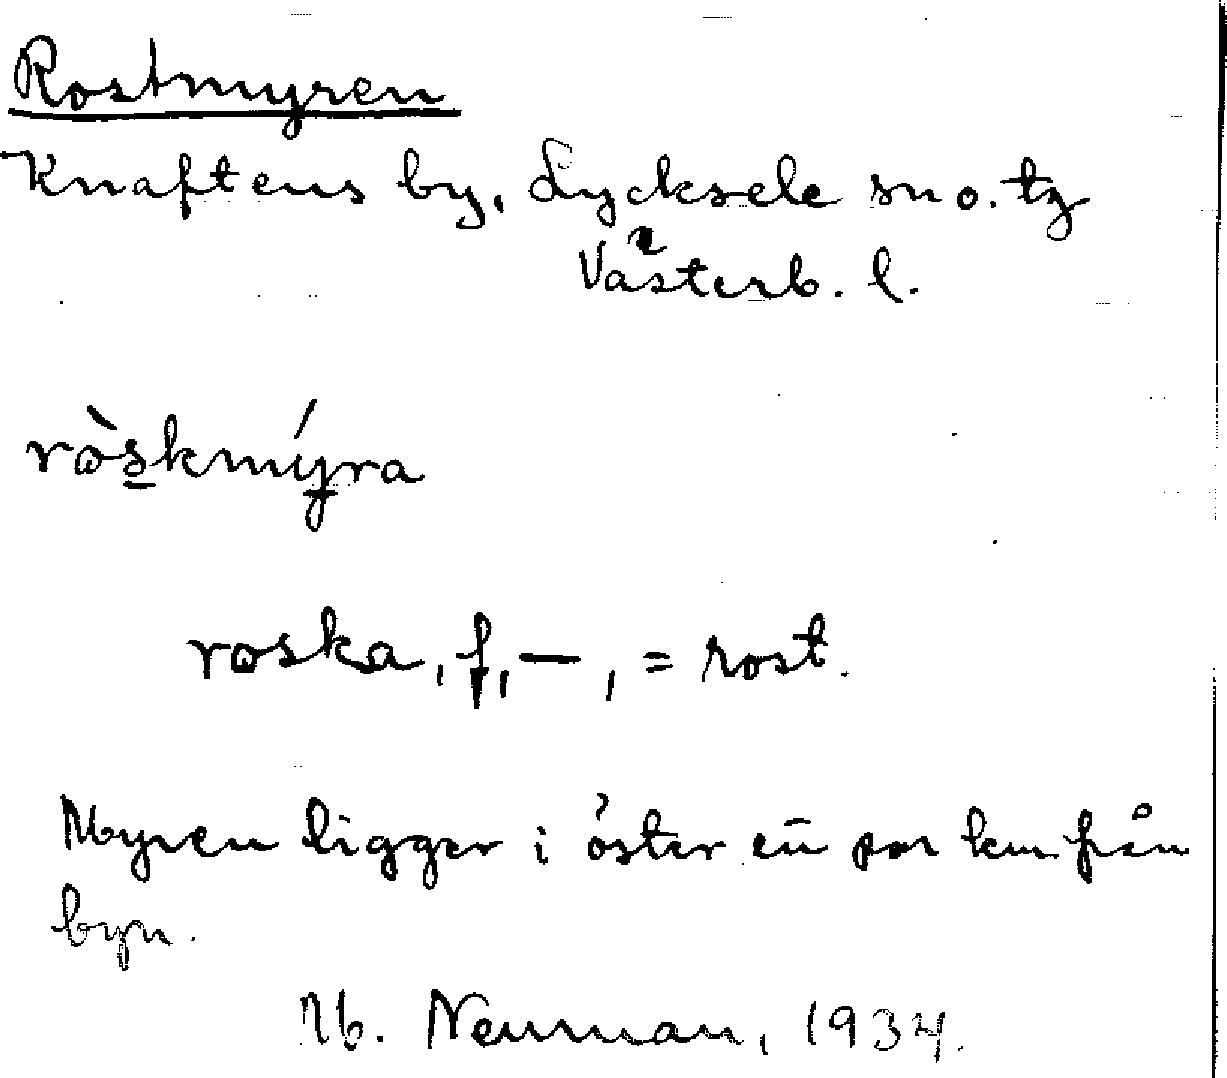 Rostmyren
Knaftens by, Lycksele sn o. tg
Västerb. l.
ròskmýra
roska, f, —, = rost.
Myren ligger i öster en par km från
byn.
M. Neuman, 1934.